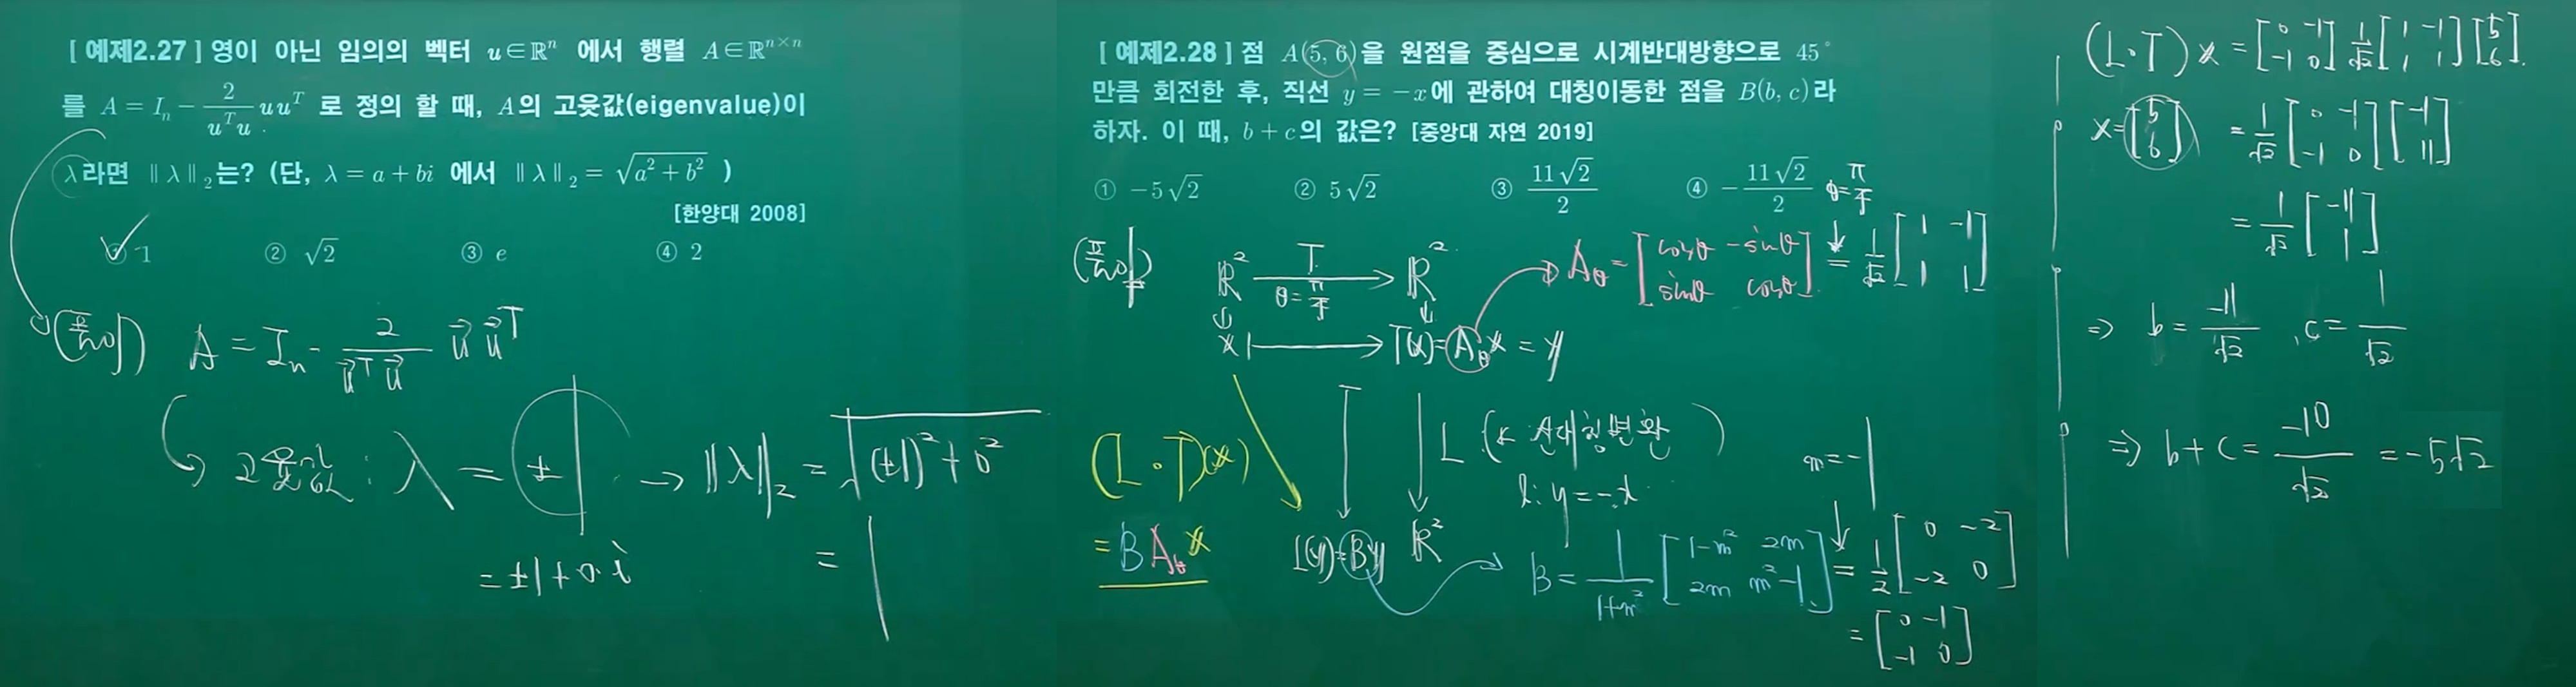 [ 예제2.27 ] 영이 아닌 임의의 벡터 u∈ℝⁿ 에서 행렬 A∈ℝⁿˣⁿ
를 A = Iₙ − 2/(uᵀu) uuᵀ 로 정의 할 때, A의 고윳값(eigenvalue)이
λ라면 ‖λ‖₂는? (단, λ = a + bi 에서 ‖λ‖₂ = √(a² + b²) )
[한양대 2008]
① 1 ② √2 ③ e ④ 2
(풀이) A = Iₙ − 2/(u⃗ᵀu⃗) u⃗u⃗ᵀ
고윳값 : λ = ±1 → ‖λ‖₂ = √((±1)² + 0²)
= ±1 + 0·i
= 1
[ 예제2.28 ] 점 A(5, 6)을 원점을 중심으로 시계반대방향으로 45°
만큼 회전한 후, 직선 y = −x에 관하여 대칭이동한 점을 B(b, c)라
하자. 이 때, b + c의 값은? [중앙대 자연 2019]
① −5√2 ② 5√2 ③ 11√2/2 ④ −11√2/2
(풀이) ℝ² T → ℝ²
θ = π/4
x ↦ T(x) = A_θ x = y
A_θ = [cosθ −sinθ; sinθ cosθ] = 1/√2 [1 −1; 1 1]
θ = π/4
(L∘T)(x)
= B A_θ x
L (선대칭변환)
l: y = −x
L(y) = By ℝ²
m = −1
B = 1/(1+m²) [1−m² 2m; 2m m²−1] = 1/2 [0 −2; −2 0]
= [0 −1; −1 0]
(L∘T) x = [0 −1; −1 0] 1/√2 [1 −1; 1 1] [5; 6].
x = [5; 6] = 1/√2 [0 −1; −1 0] [−1; 11]
= 1/√2 [−11; 1]
⇒ b = −11/√2 , c = 1/√2
⇒ b + c = −10/√2 = −5√2